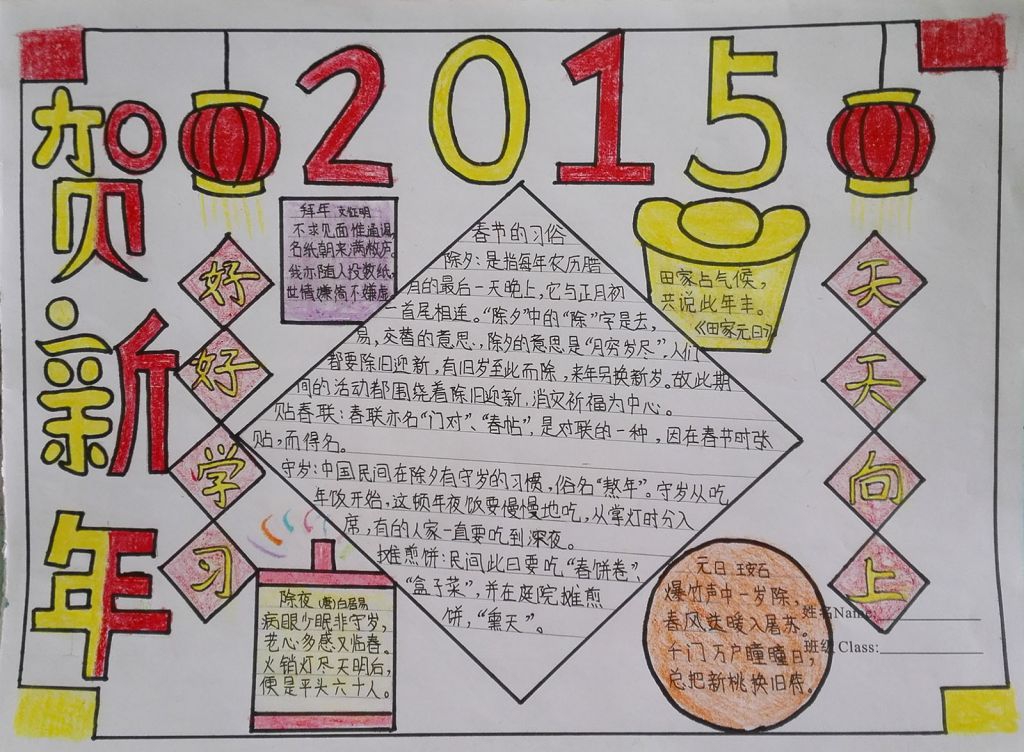 2015
贺新年
好好学习
天天向上
拜年 文征明
不求见面惟通谒,
名纸朝来满敝庐。
我亦随人投数纸,
世情嫌简不嫌虚
田家占气候,
共说此年丰。
《田家元日》
春节的习俗
除夕:是指每年农历腊
月的最后一天晚上,它与正月初
一首尾相连。“除夕”中的“除”字是去,
易,交替的意思.,除夕的意思是“月穷岁尽”.人们
都要除旧迎新,有旧岁至此而除,来年另换新岁。故此期
间的活动都围绕着除旧迎新,消灾祈福为中心。
贴春联:春联亦名“门对”、“春帖”,是对联的一种,因在春节时张
贴,而得名。
守岁:中国民间在除夕有守岁的习惯,俗名“熬年”。守岁从吃
年饭开始,这顿年夜饭要慢慢地吃,从掌灯时分入
席,有的人家一直要吃到深夜。
摊煎饼:民间此日要吃“春饼卷”、
“盒子菜”,并在庭院摊煎
饼,“熏天”。
除夜 (唐)白居易
病眼少眠非守岁,
老心多感又临春。
火销灯尽天明后,
便是平头六十人。
元日 王安石
爆竹声中一岁除,
春风送暖入屠苏。
千门万户瞳瞳日,
总把新桃换旧符。
姓名Name:
班级 Class: